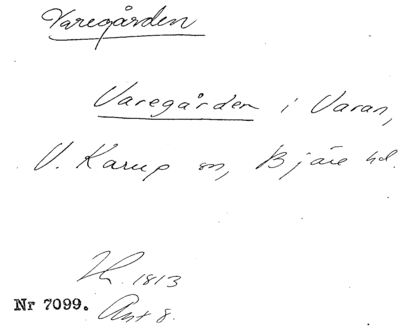 Varegården
Varegården i Varan,
V. Karup sn, Bjäre hd.
1813
Nr 7099. Ant 8.